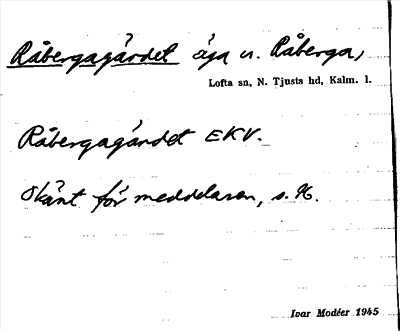 Råbergagärdet äga u. Råberga,
Lofta sn, N. Tjusts hd, Kalm. l.
Råbergagärdet EKV.
Okänt för meddelaren, s.
Ivar Modéer 1945